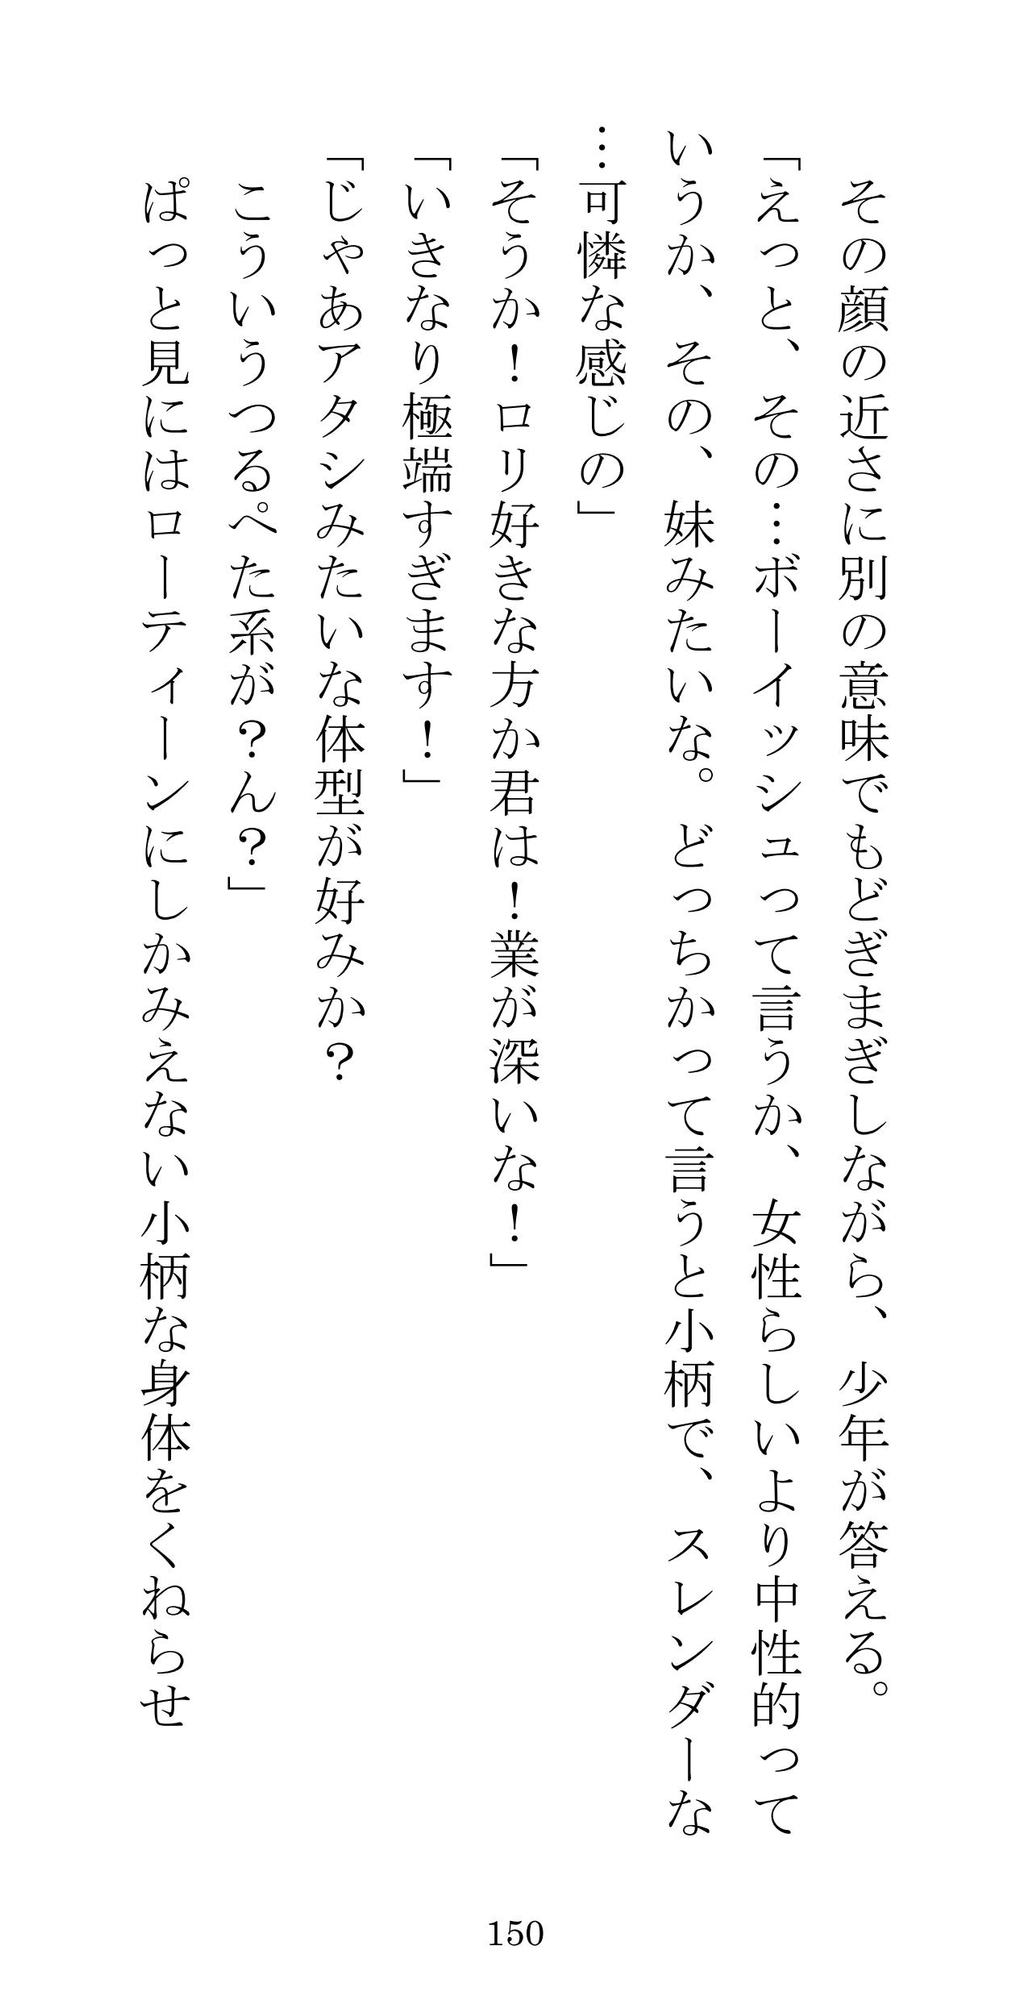 その顔の近さに別の意味でもどぎまぎしながら、少年が答える。
「えっと、その…ボーイッシュって言うか、女性らしいより中性的って
いうか、その、妹みたいな。どっちかって言うと小柄で、スレンダーな
…可憐な感じの」
「そうか！ロリ好きな方か君は！業が深いな！」
「いきなり極端すぎます！」
「じゃあアタシみたいな体型が好みか？
こういうつるぺた系が？ん？」
ぱっと見にはローティーンにしかみえない小柄な身体をくねらせ
150